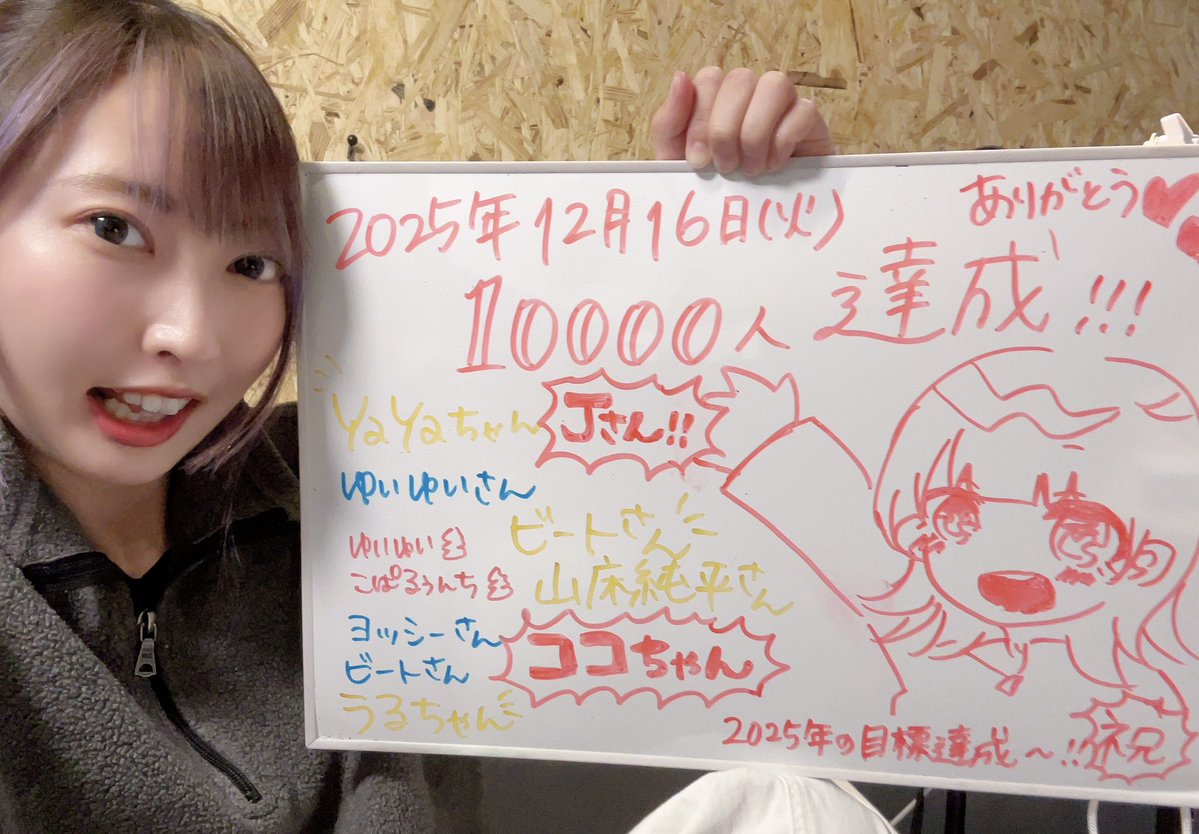 2025年12月16日(火)
ありがとう
10000人達成!!!
YaYaちゃん
Jさん!!
ゆいゆいさん
ビートさん
ゆいゆい
こぱるぅんち
山床純平さん
ヨッシーさん
ココちゃん
ビートさん
うるちゃん
2025年の目標達成~!!
祝